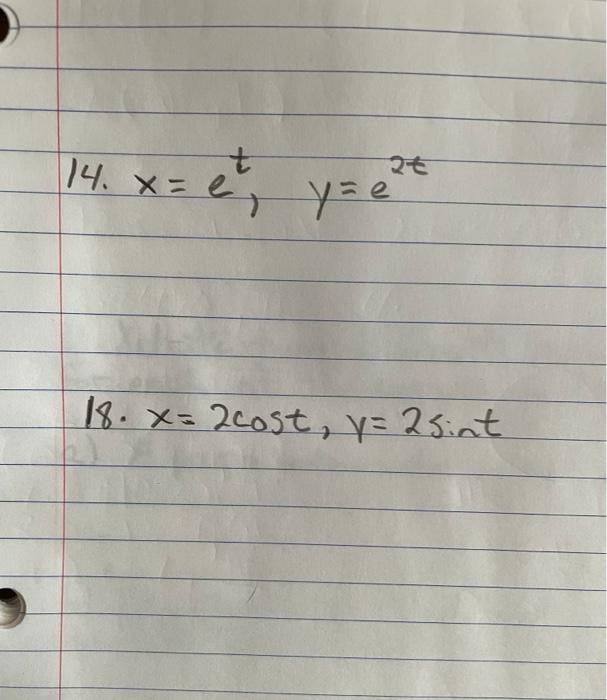 14. x = e^t, y = e^2t
18. x = 2cost, y = 2sint